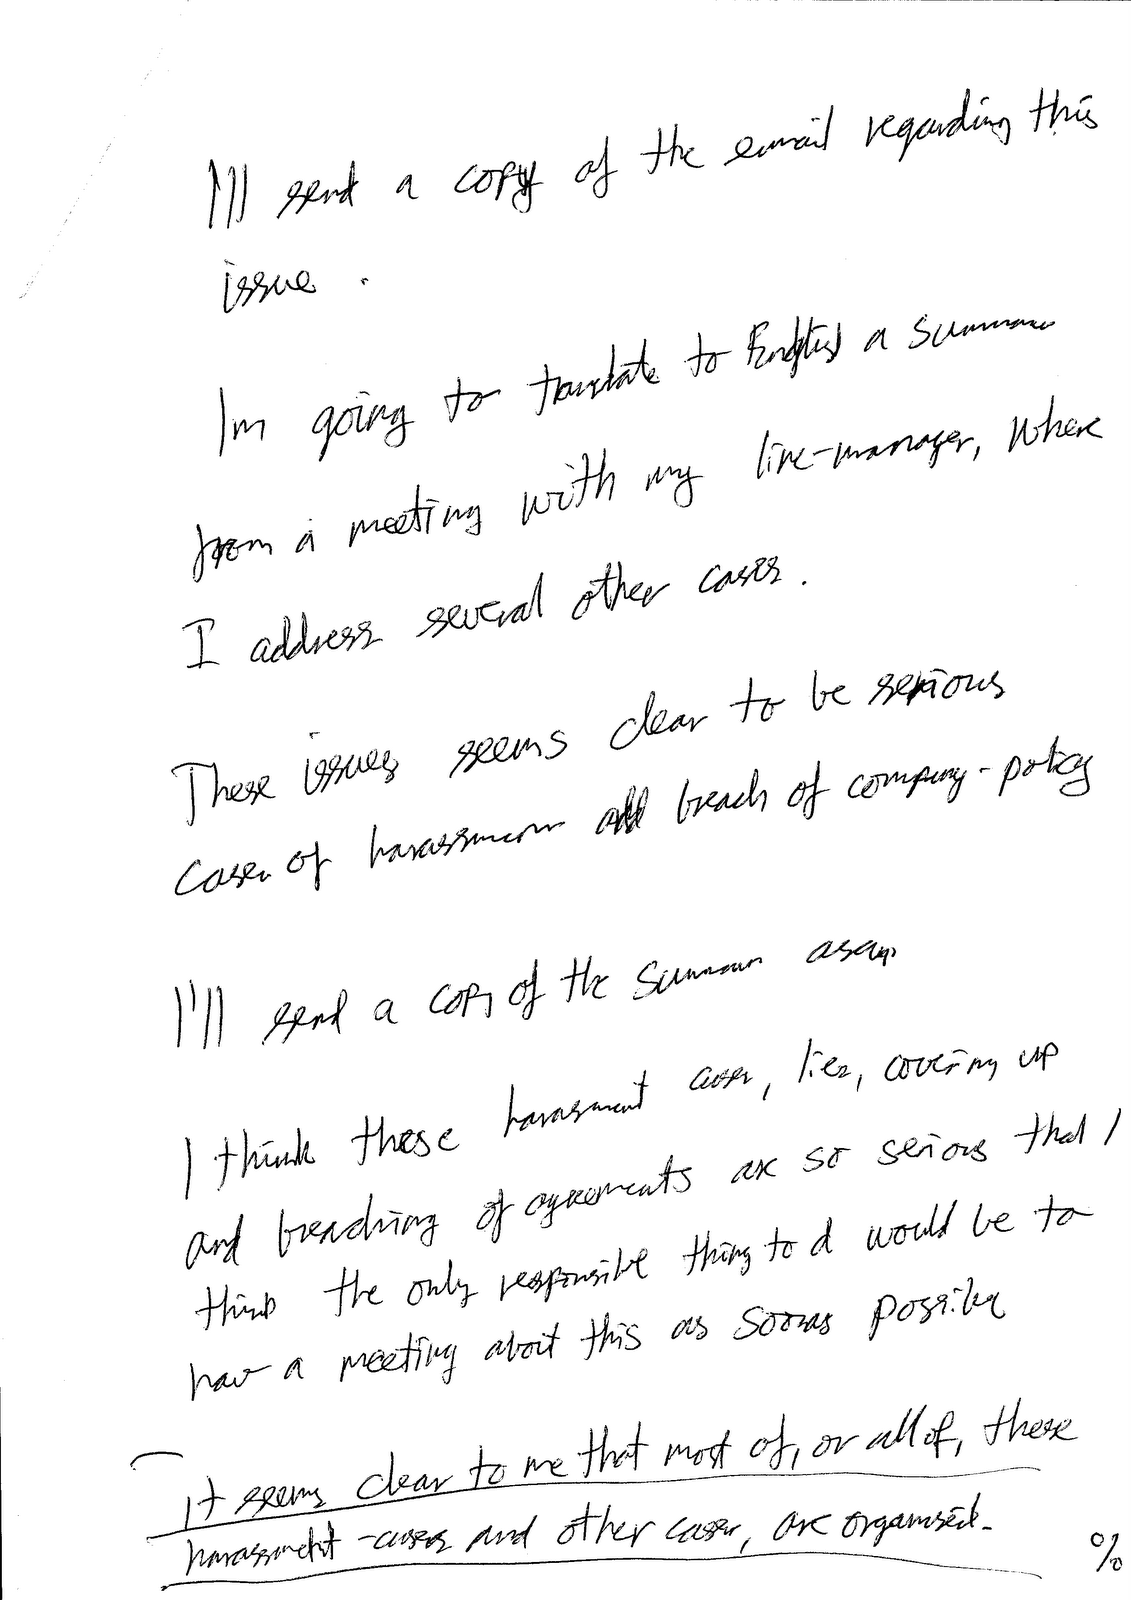 I'll send a copy of the email regarding this
issue.
Im going to translate to English a summary
from a meeting with my line-manager, where
I address several other cases.
These issues seems clear to be serious
cases of harassment and breach of company-policy
I'll send a copy of the summary asap
I think these harassment cases, lies, covering up
and breaching of agreements are so serious that I
think the only responsible thing to d would be to
have a meeting about this as soon as possible
it seems clear to me that most of, or all of, these
harassment-cases and other cases, are organised.
%